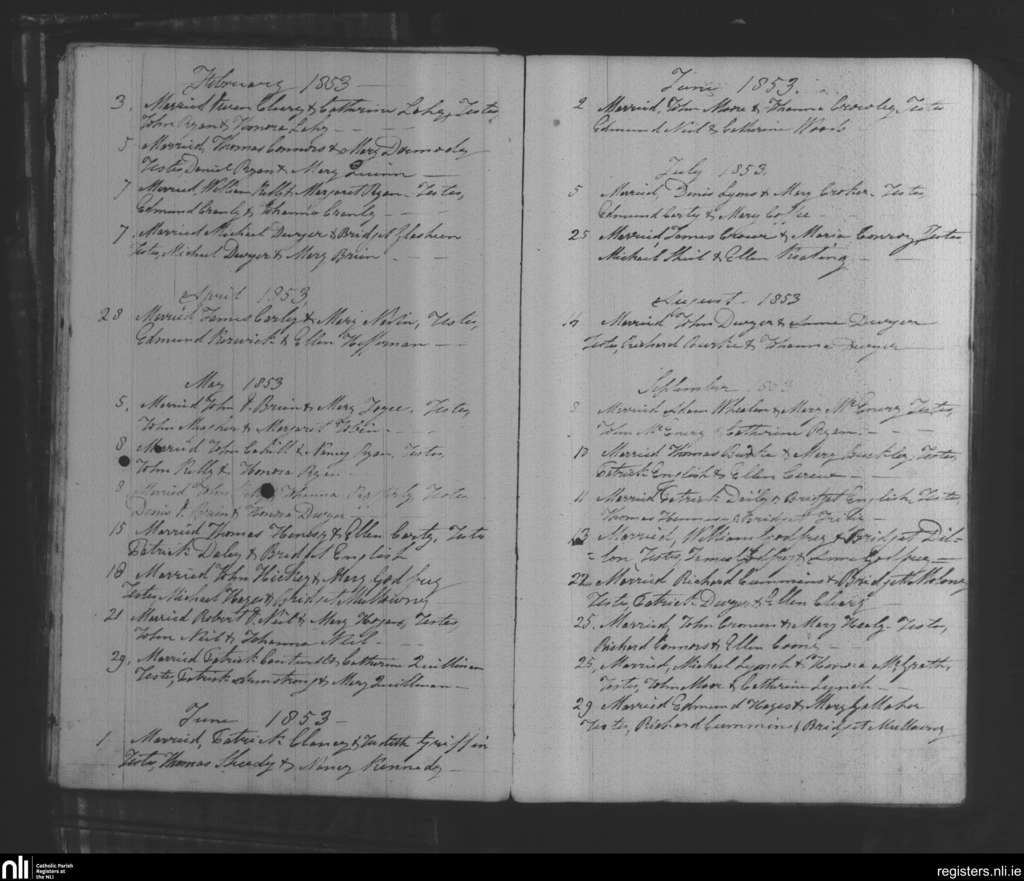 February 1853
3. Married Kieran Cleary & Catherine Lahy, Testes
John Ryan & Honora Lahy
5 Married, Thomas Connors & Mary Darmody
Testes Daniel Ryan & Mary Quinn
7 Married William & Margaret Ryan Testes,
Edmund Cranly & Johanna Cranly
7. Married Michael Dwyer & Bridget Glasheen
Testes, Michael Dwyer & Mary Brien
April 1853
28 Married James Carty & Mary, Testes,
Edmund & Ellen Heffernan
May 1853
5. Married John O Brien & Mary Joyce. Testes,
John & Margaret Tobin
8 Married John Cahill & Nancy Ryan, Testes,
John Kelly & Honora Ryan
8 Married John Johanna Testes
Denis O Brien & Honora Dwyer
15 Married Thomas & Ellen Carty, Testes
Patrick Daley & Bridget English
18 Married John Hickey & Mary Godfrey
Testes Michael Hayes & Bridget Mullowny
21 Married Robert O Neil & Mary Hogan, Testes,
John Neil & Johanna Neil
29, Married Patrick Cantwell & Catherine Quillinan
Testes, Patrick Armstrong & Mary Quillinan
June 1853
1. Married, Patrick Clancy & Judith Griffin
Testes, Thomas Sheedy & Nancy Kennedy
June 1853.
2 Married, John Moore & Johanna Crowley, Testes
Edmund Neil & Catherine Woods
July 1853.
5 Married, Denis Lyons & Mary Croker. Testes,
Edmund Carty & Mary
25 Married James & Maria Conroy, Testes
Michael & Ellen Keating
August 1853
Married John Dwyer & Anne Dwyer
Testes, Richard Bourke & Johanna Dwyer
September 1853
Married Whealan & Mary McEnery Testes,
John McEnery & Catherine Ryan
10 Married Thomas Burke & Mary Buckley, Testes,
Patrick English & Ellen
11 Married Patrick Daily & Bridget English, Testes,
Thomas & Bridget
13 Married, William Godfrey & Bridget Dil=
=lon, Testes, James Godfrey & Anne Godfrey
22 Married Richard Cummins & Bridget Molony
Testes, Patrick Dwyer & Ellen Cleary
25. Married, John Cronin & Mary Healy. Testes,
Richard Connors & Ellen
25, Married, Michael Lynch & Honora McGrath,
Testes, John Moore & Catherine Lynch
29 Married Edmund Hayes & Mary Maher
Testes, Richard Cummins & Bridget Mullowny
nli
Catholic Parish
Registers at
the NLI
registers.nli.ie